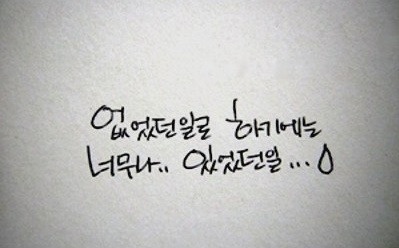 없었던일로 하기에는
너무나.. 있었던일...